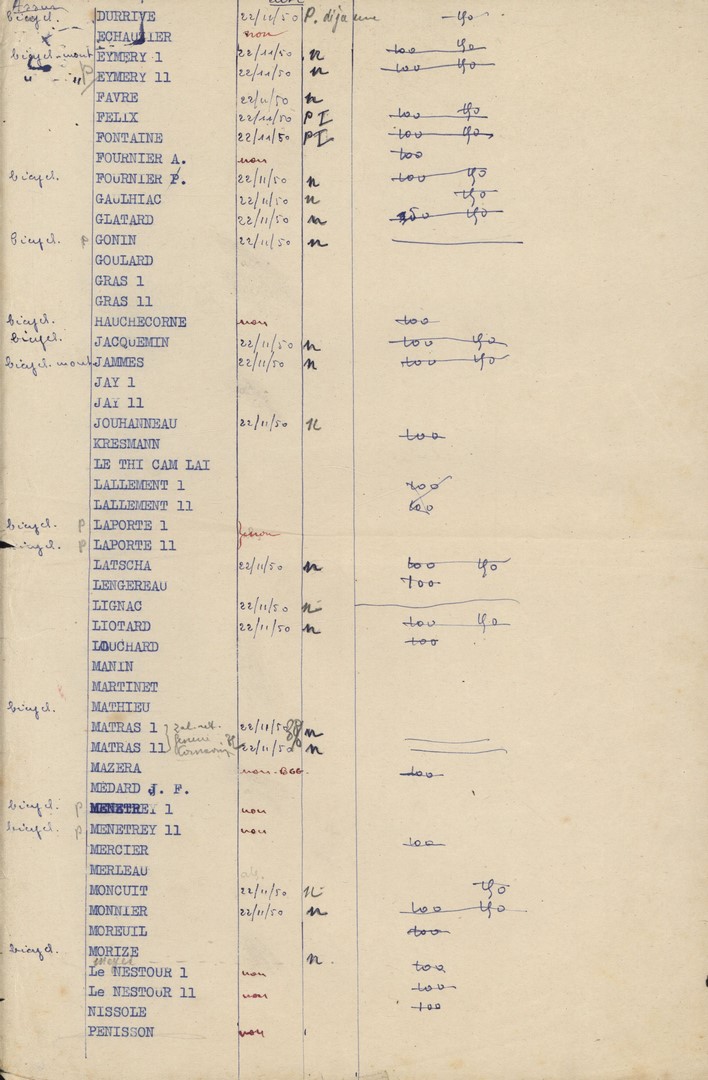 Assur
bicycl. DURRIVE 22/11/50 P. déja une 50
ECHAUZIER non
bicycl-mont EYMERY 1 22/11/50 n 100 50
" " P EYMERY 11 22/11/50 n 100 50
FAVRE 22/11/50 n
FELIX 22/11/50 P I 100 50
FONTAINE 22/11/50 P I 100 50
FOURNIER A. non 100
bicycl. FOURNIER P. 22/11/50 n 100 50
GAULHIAC 22/11/50 n 50
GLATARD 22/11/50 n 50
bicycl. P GONIN 22/11/50 n
GOULARD
GRAS 1
GRAS 11
bicycl. HAUCHECORNE non 100
bicycl. JACQUEMIN 22/11/50 n 100 50
bicycl. mont JAMMES 22/11/50 n 100 50
JAY 1
JAY 11
JOUHANNEAU 22/11/50 n 100
KRESMANN
LE THI CAM LAI
LALLEMENT 1 100
LALLEMENT 11 100
bicycl. P LAPORTE 1
bicycl. P LAPORTE 11
LATSCHA 22/11/50 n 100 50
LENGEREAU 100
LIGNAC 22/11/50 n
LIOTARD 22/11/50 n 100 50
LOUCHARD 100
MANIN
MARTINET
bicycl. MATHIEU
MATRAS 1 22/11/50 n
MATRAS 11 22/11/50 n
MAZERA non 100
MEDARD J. F.
bicycl. P MENETREY 1 non
bicycl. P MENETREY 11 non
MERCIER 100
MERLEAU
MONCUIT 22/11/50 n 50
MONNIER 22/11/50 n 100 50
MOREUIL 100
bicycl. MORIZE
n
Le NESTOUR 1 non 100
Le NESTOUR 11 non 100
NISSOLE 100
PENISSON non